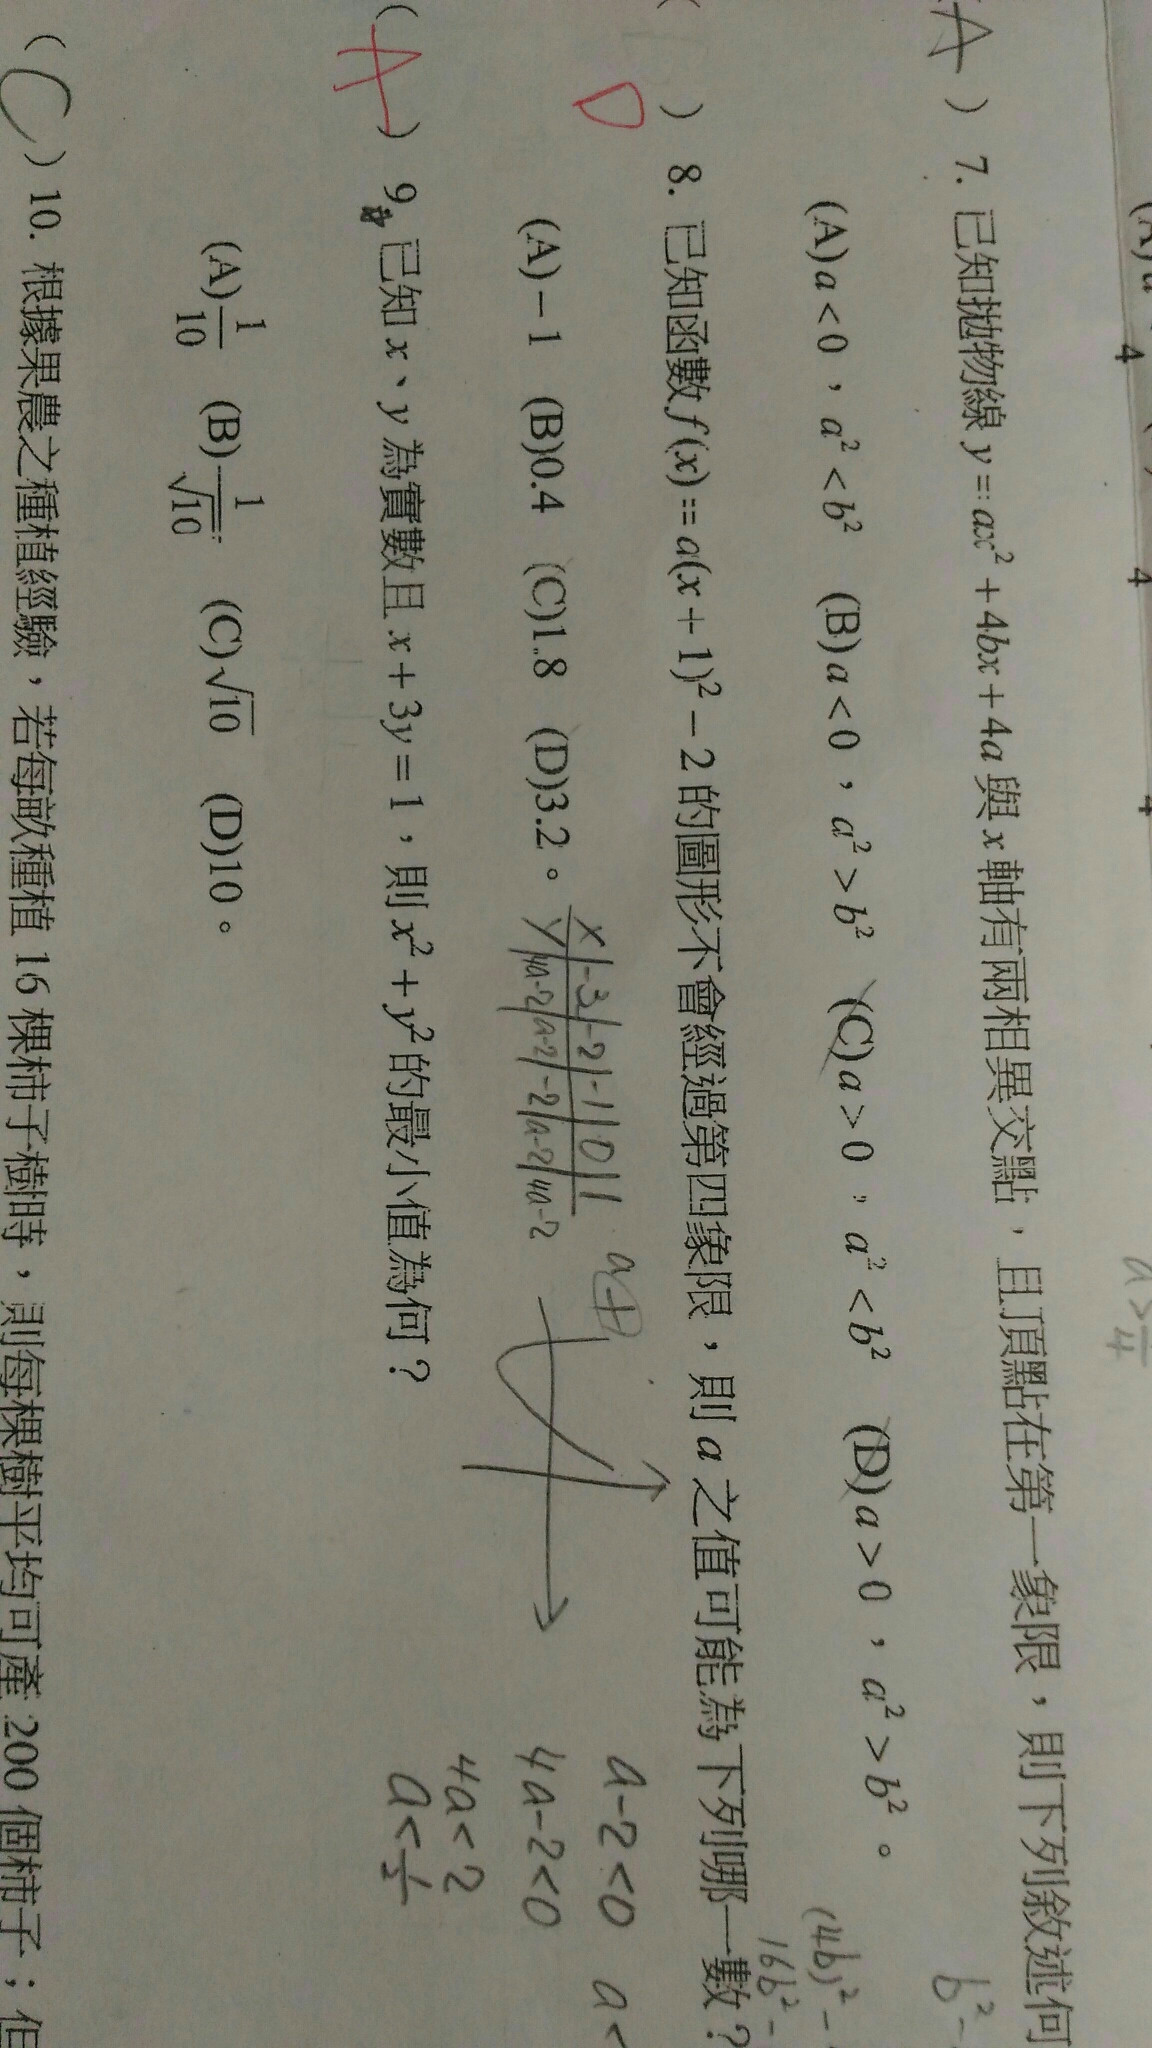 (A) 7. 已知拋物線 y=ax²+4bx+4a 與 x 軸有兩相異交點，且頂點在第一象限，則下列敘述何
(A)a<0，a²<b² (B)a<0，a²>b² (C)a>0，a²<b² (D)a>0，a²>b²。
b²-
(4b)²-
16b²-
( D ) 8. 已知函數 f(x)=a(x+1)²-2 的圖形不會經過第四象限，則 a 之值可能為下列哪一數？
(A)-1 (B)0.4 (C)1.8 (D)3.2。
x -3 -2 -1 0 1
y 4a-2 a-2 -2 a-2 4a-2
a+
a-2<0 a<
4a-2<0
4a<2
a<1/2
(A) 9. 已知 x、y 為實數且 x+3y=1，則 x²+y² 的最小值為何？
(A)1/10 (B)1/√10 (C)√10 (D)10。
(C) 10. 根據果農之種植經驗，若每畝種植 16 棵柿子樹時，則每棵樹平均可產 200 個柿子；但